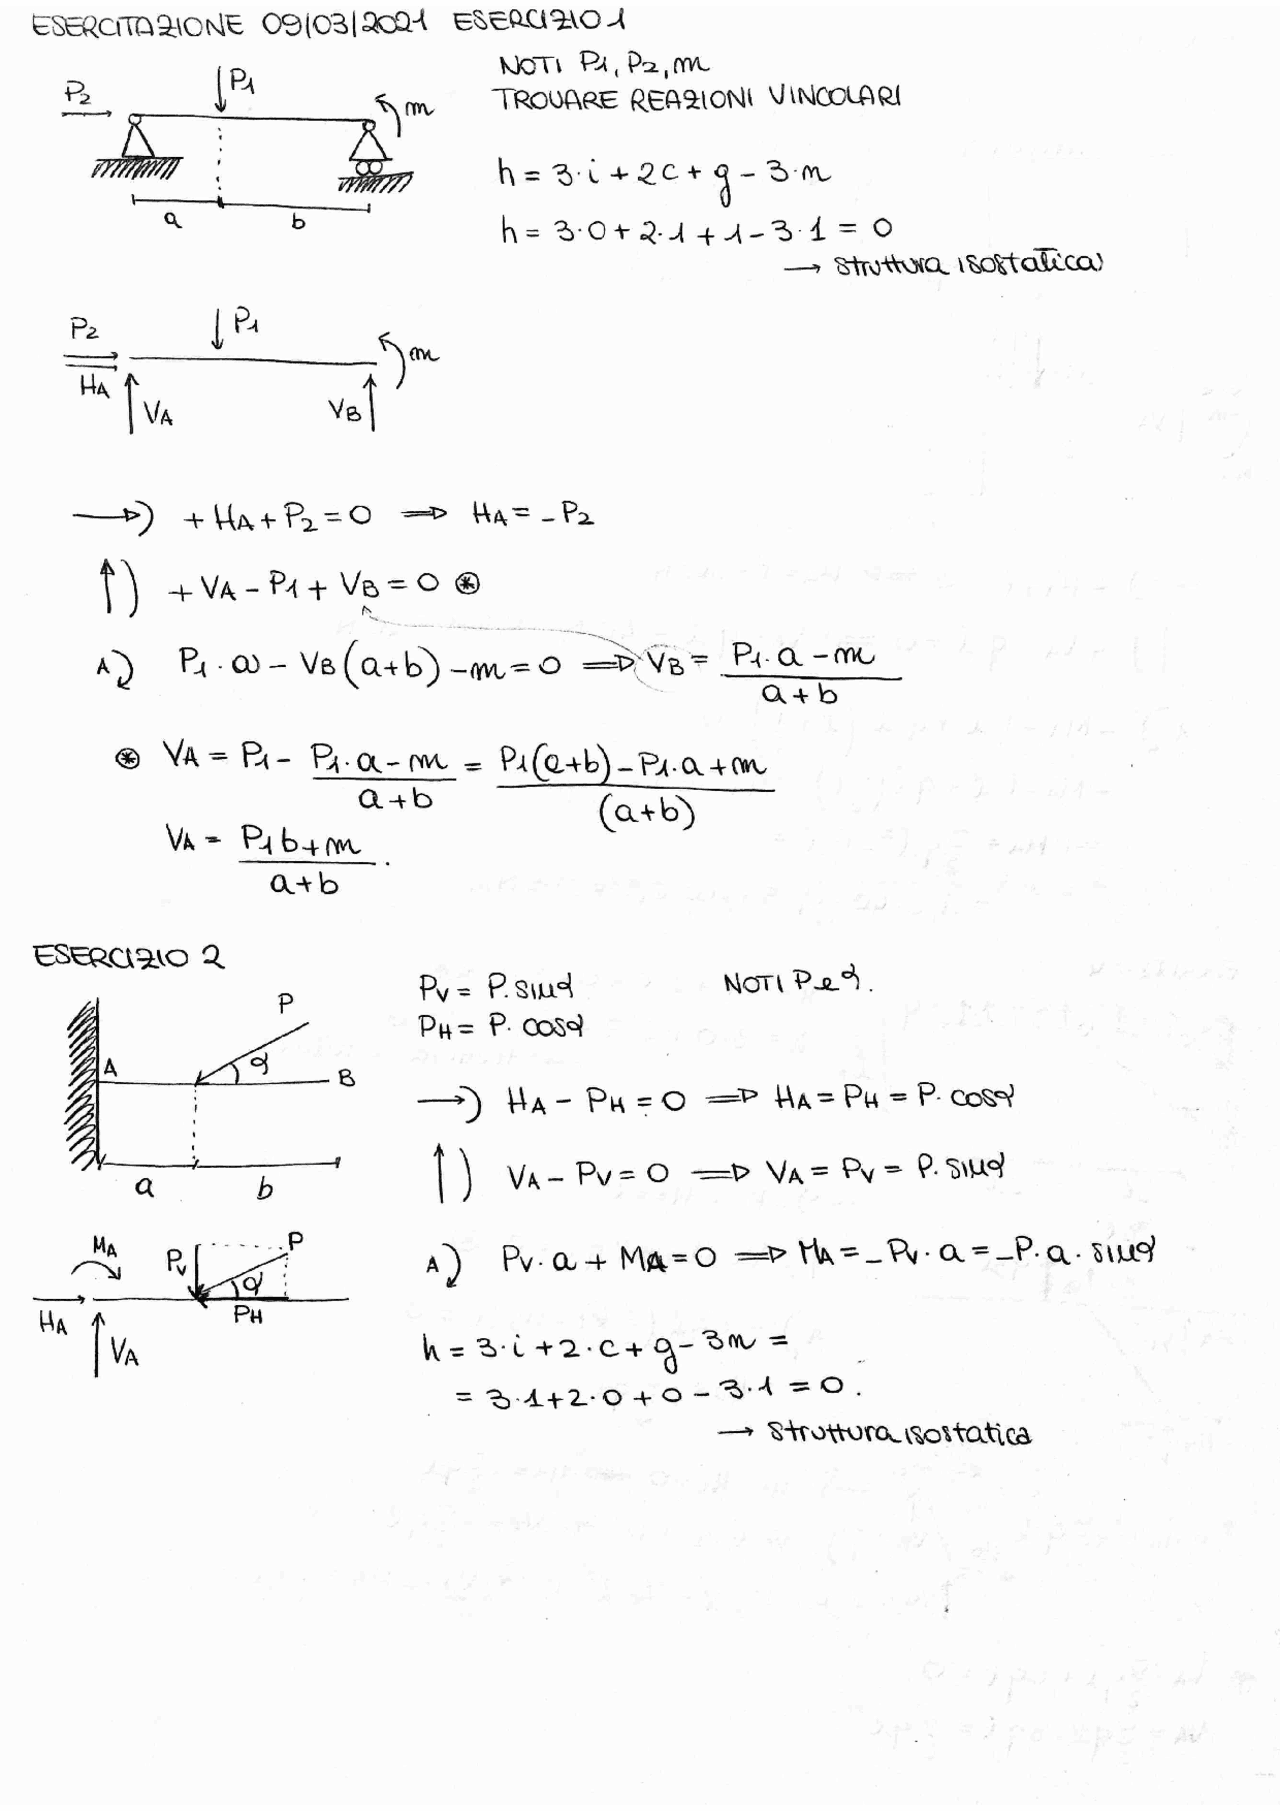 ESERCITAZIONE 09/03/2021 ESERCIZIO 1
NOTI P1, P2, m
TROVARE REAZIONI VINCOLARI
P2
P1
m
a
b
h = 3·i + 2c + g - 3·n
h = 3·0 + 2·1 + 1 - 3·1 = 0
→ struttura isostatica
P2
P1
m
HA
VA
VB
→) + HA + P2 = 0 ⇒ HA = -P2
↑) + VA - P1 + VB = 0 ⊛
A) P1·a - VB(a+b) - m = 0 ⇒ VB = (P1·a - m)/(a+b)
⊛ VA = P1 - (P1·a - m)/(a+b) = (P1(a+b) - P1·a + m)/(a+b)
VA = (P1b + m)/(a+b).
ESERCIZIO 2
PV = P·sinα
NOTI P e α.
PH = P·cosα
P
A
α
B
a
b
→) HA - PH = 0 ⇒ HA = PH = P·cosα
↑) VA - PV = 0 ⇒ VA = PV = P·sinα
MA
PV
P
α
PH
HA
VA
A) PV·a + MA = 0 ⇒ MA = -PV·a = -P·a·sinα
h = 3·i + 2·c + g - 3n =
= 3·1 + 2·0 + 0 - 3·1 = 0.
→ struttura isostatica